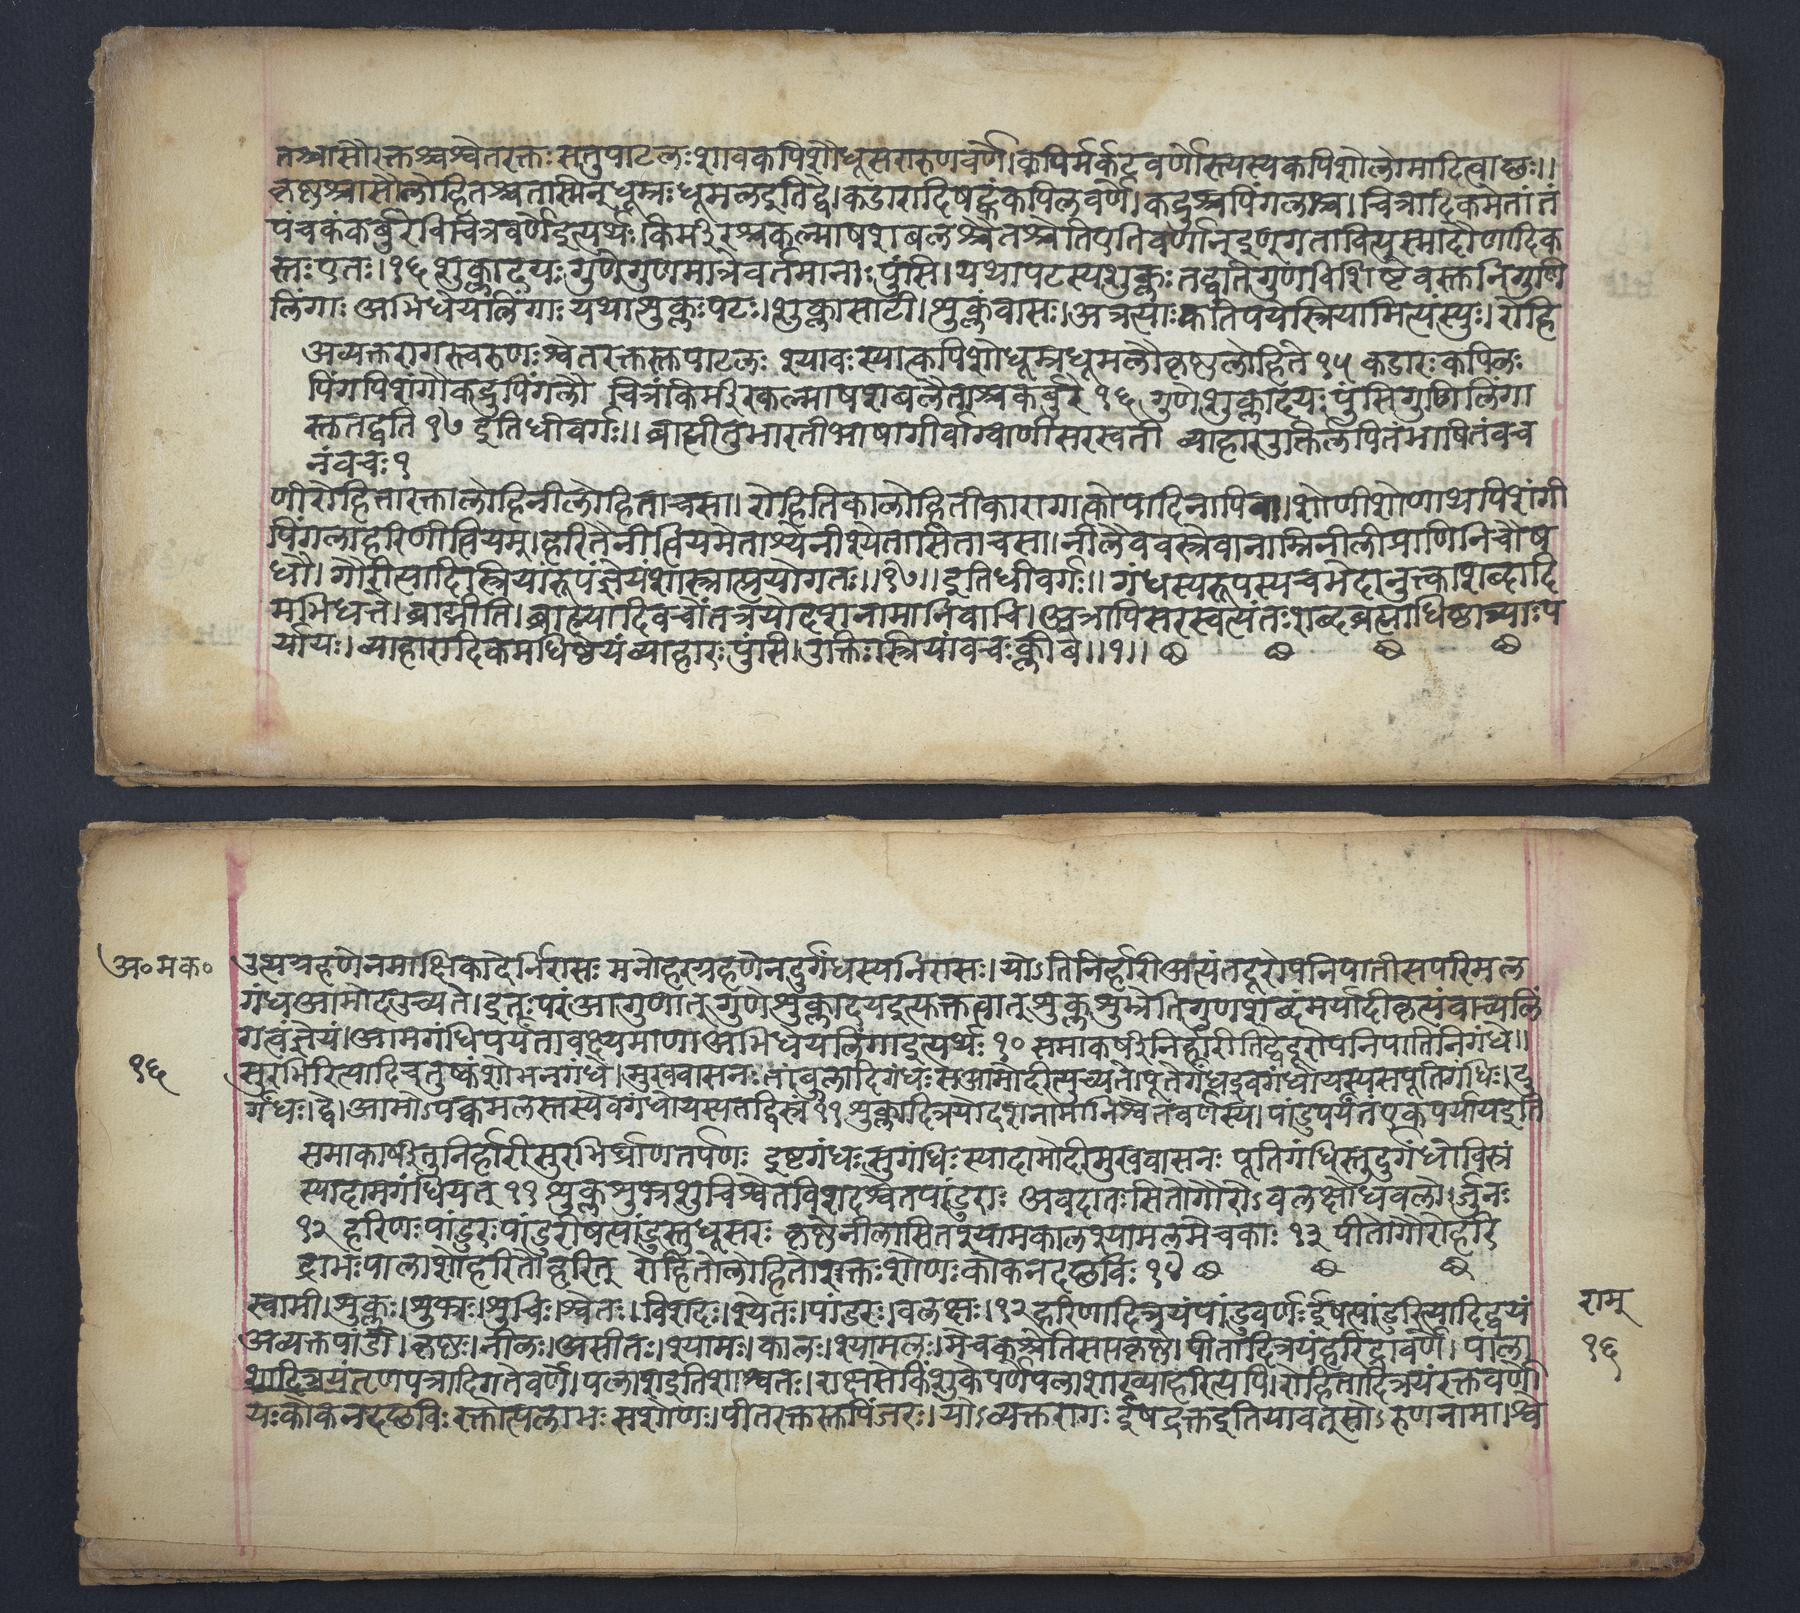 तश्चासौरक्तश्चश्वेतरक्तः सतुपाटलः श्यावकपिशौधूसरारुणवर्णे। कपिर्मर्कटवर्णोस्त्यस्यकपिशोलोमादित्वाच्छः॥
कृष्णश्चासौलोहितश्चतास्मिन्धूम्रः धूमलइतिद्वे। कडारादिषट्कंकपिलवर्णे। कद्रुश्चपिंगलाश्च। चित्रादिकमेतांतं
पंचकंकर्बुरेविचित्रवर्णेइत्यर्थः किर्मीरश्चकल्माषशबलश्चेतश्चेतिएतिवर्णानइणगतावित्यस्मादौणादिक
स्तः एतः। १६ शुक्लादयः गुणेगुणमात्रेवर्तमानाः पुंसि। यथापटस्यशुक्लः तद्वतिगुणविशिष्टेवस्तुनिगुणि
लिंगाः अभिधेयलिंगाः यथाशुक्लः पटः। शुक्लासाटी। शुक्लंवासः। अत्रत्याः कतिपयेस्त्रियामित्थंस्युः। रोहि
अव्यक्तरागस्त्वरुणः श्वेतरक्तस्तुपाटलः श्यावः स्यात्कपिशोधूम्रधूमलौकृष्णलोहिते १५ कडारः कपिलः
पिंगपिशंगौकद्रुपिंगलौ चित्रंकिर्मीरकल्माषशबलैताश्चकर्बुरे १६ गुणेशुक्लादयः पुंसिगुणिलिंगा
स्तुतद्वति १७ इतिधीवर्गः॥ ब्राह्मीतुभारतीभाषागीर्वाग्वाणीसरस्वती व्याहारउक्तिर्लपितंभाषितंवच
नंवचः १
णीरोहितारक्तालोहिनीलोहिताचसा। रोहितिकालोहितीकारागात्कोपादिनापिवा। शोणीशोणाथपिशंगी
पिंगलाहरिणीत्वियम्। हरितेनीत्वियमेताश्येनीश्येतासिताचसा। नीलैववस्त्रेवानाम्निनीलीप्राणिनिचौष
धौ। गौरीत्यादिस्त्रियांरूपंज्ञेयंशास्त्रात्प्रयोगतः॥१७॥ इतिधीवर्गः॥ गंधस्यरूपस्यचभेदानुक्त्वाशब्दादि
मभिधत्ते। ब्राह्मीति। ब्राह्म्यादिवचोंतत्रयोदशनामानिवाचि। अत्रापिसरस्वत्यंतः शब्दब्रह्माधिष्ठात्र्याः प
र्यायः। व्याहारादिकमधिष्ठेयं व्याहारः पुंसि। उक्तिः स्त्रियांवचः क्लीबे॥१॥
अ॰मक॰
उत्थग्रहणेनमाक्षिकादेर्निरासः मनोहरग्रहणेनदुर्गंधस्यनिरासः। योऽतिनिर्हारीअत्यंतदूरोपनिपातीसपरिमल
गंधआमोदउच्यते। इतः परंआगुणात् गुणेशुक्लादयइत्यक्तत्वात् शुक्लशुभ्रेतिगुणशब्दंमर्यादीकृत्यवाच्यलिं
गत्वंज्ञेयं। आमगंधिपर्यंतावक्ष्यमाणाअभिधेयलिंगाइत्यर्थः १० समाकर्षीनिर्हारीतिद्वेदूरोपनिपातिनिगंधे॥
१६
सुरभिरित्यादिचतुष्कंशोभनगंधे। मुखवासनः तांबुलादिगंधः सआमोदीत्युच्यते। पूतेर्गंधइवगंधोयस्यसपूतिगंधिः। दु
र्गंधः। द्वे। आमोऽपक्वमलस्तस्येवगंधोयस्यतद्विस्रं ११ शुक्लादित्रयोदशनामानिश्वेतवर्णस्य। पांडुपर्यंतंएकपर्यायइति
समाकर्षीतुनिर्हारीसुरभिर्घ्राणतर्पणः इष्टगंधः सुगंधिः स्यादामोदीमुखवासनः पूतिगंधिस्तुदुर्गंधोविस्रं
स्यादामगंधियत् ११ शुक्लशुभ्रशुचिश्वेतविशदश्येतपांडुराः अवदातः सितोगौरोऽवलक्षोधवलोऽर्जुनः
१२ हरिणः पांडुरः पांडुरीषत्पांडुस्तुधूसरः कृष्णेनीलासितश्यामकालश्यामलमेचकाः १३ पीतोगौरोहरि
द्राभः पालाशोहरितोहरित् रोहितोलोहितोरक्तः शोणः कोकनदच्छविः १४
स्वामी। शुक्लः। शुभ्रः। शुचिः। श्वेतः। विशदः। श्येतः। पांडरः। वलक्षः। १२ हरिणादित्रयंपांडुवर्णः ईषत्पांडुरित्यादिद्वयं
राम्
अव्यक्तपांडौ। कृष्णः। नीलः। असीतः। श्यामः। कालः। श्यामलः। मेचकश्चेतिसप्तकृष्णे। पीतादित्रयंहरिद्रावर्णे। पाला
१६
शादित्रयंतृणपत्रादिगतेवर्णे। पलाशइतिशाश्वतः। राक्षसेकिंशुकेपर्णेपलाशाख्याहरित्यपि। रोहितादित्रयंरक्तवर्णो
यः कोकनदच्छविः रक्तोत्पलाभः सशोणः। पीतरक्तस्तुपिंजरः। योऽव्यक्तरागः ईषद्रक्तइतियावत्सोऽरुणनामा। श्वे